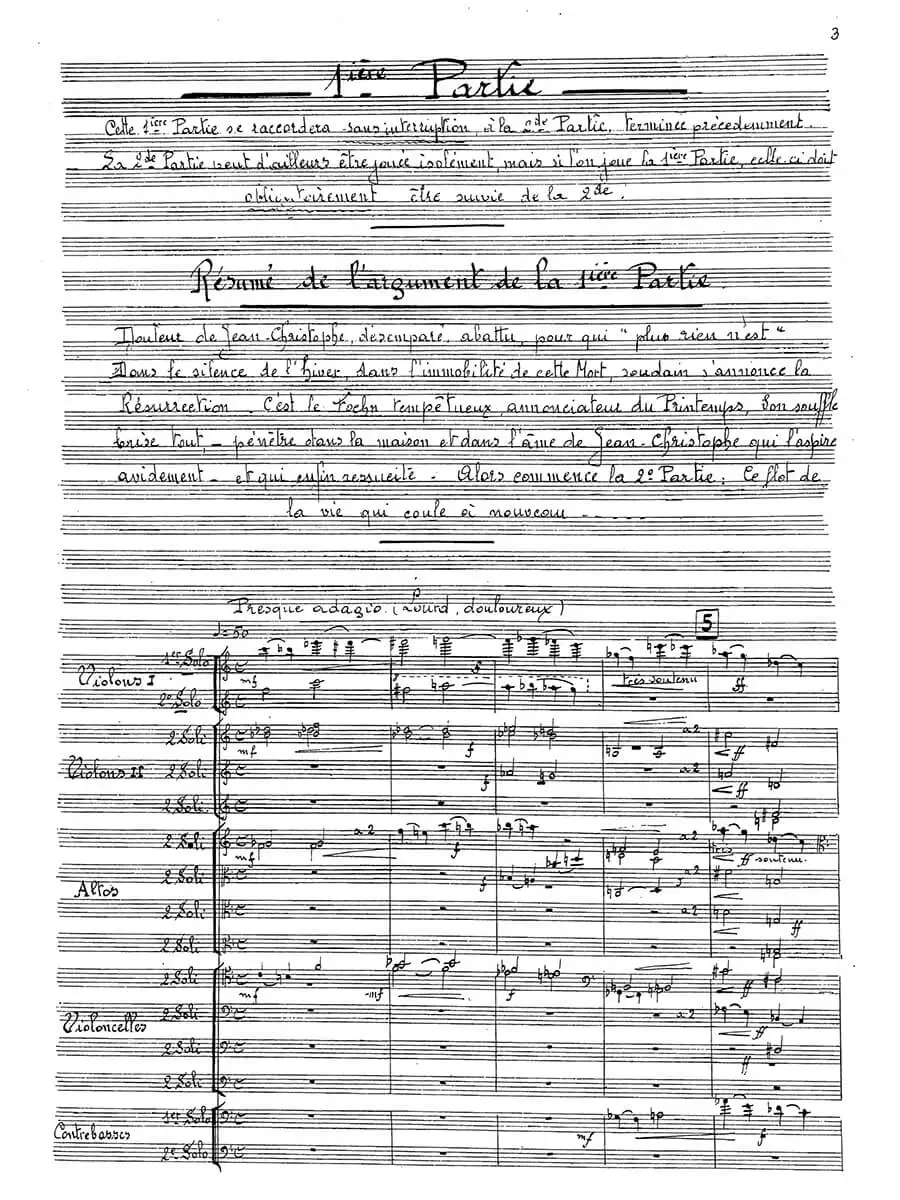 3
1ière Partie
Cette 1ière Partie se raccordera sans interruption, à la 2de Partie, terminée précédemment.
La 2de Partie peut d'ailleurs être jouée isolément, mais si l'on joue la 1ière Partie, celle-ci doit
obligatoirement être suivie de la 2de.
Résumé de l'argument de la 1ière Partie
Douleur de Jean-Christophe, désemparé, abattu, pour qui "plus rien n'est"
Dans le silence de l'hiver, dans l'immobilité de cette Mort, soudain s'annonce la
Résurrection. C'est le Foehn tempêtueux, annonciateur du Printemps, Son souffle
brise tout - pénètre dans la maison et dans l'âme de Jean-Christophe qui l'aspire
avidement - et qui enfin ressuscité - Alors commence la 2e Partie: Ce flot de
la vie qui coule à nouveau -----
Presque adagio. (Lourd, douloureux)
♩=50
5
Violons I
1er Solo
mf
très soutenu
ff
2e Solo
Violons II
2 Soli
mf
f
a2
ff
2 Soli
a2
ff
2 Soli
Altos
2 Soli
mf
a2
f
très
ff soutenu
2 Soli
f
a2
2 Soli
a2
ff
2 Soli
Violoncelles
2 Soli
mf
mf
f
ff
2 Soli
a2
ff
2 Soli
2 Soli
Contrebasses
1er Solo
mf
ff
2e Solo